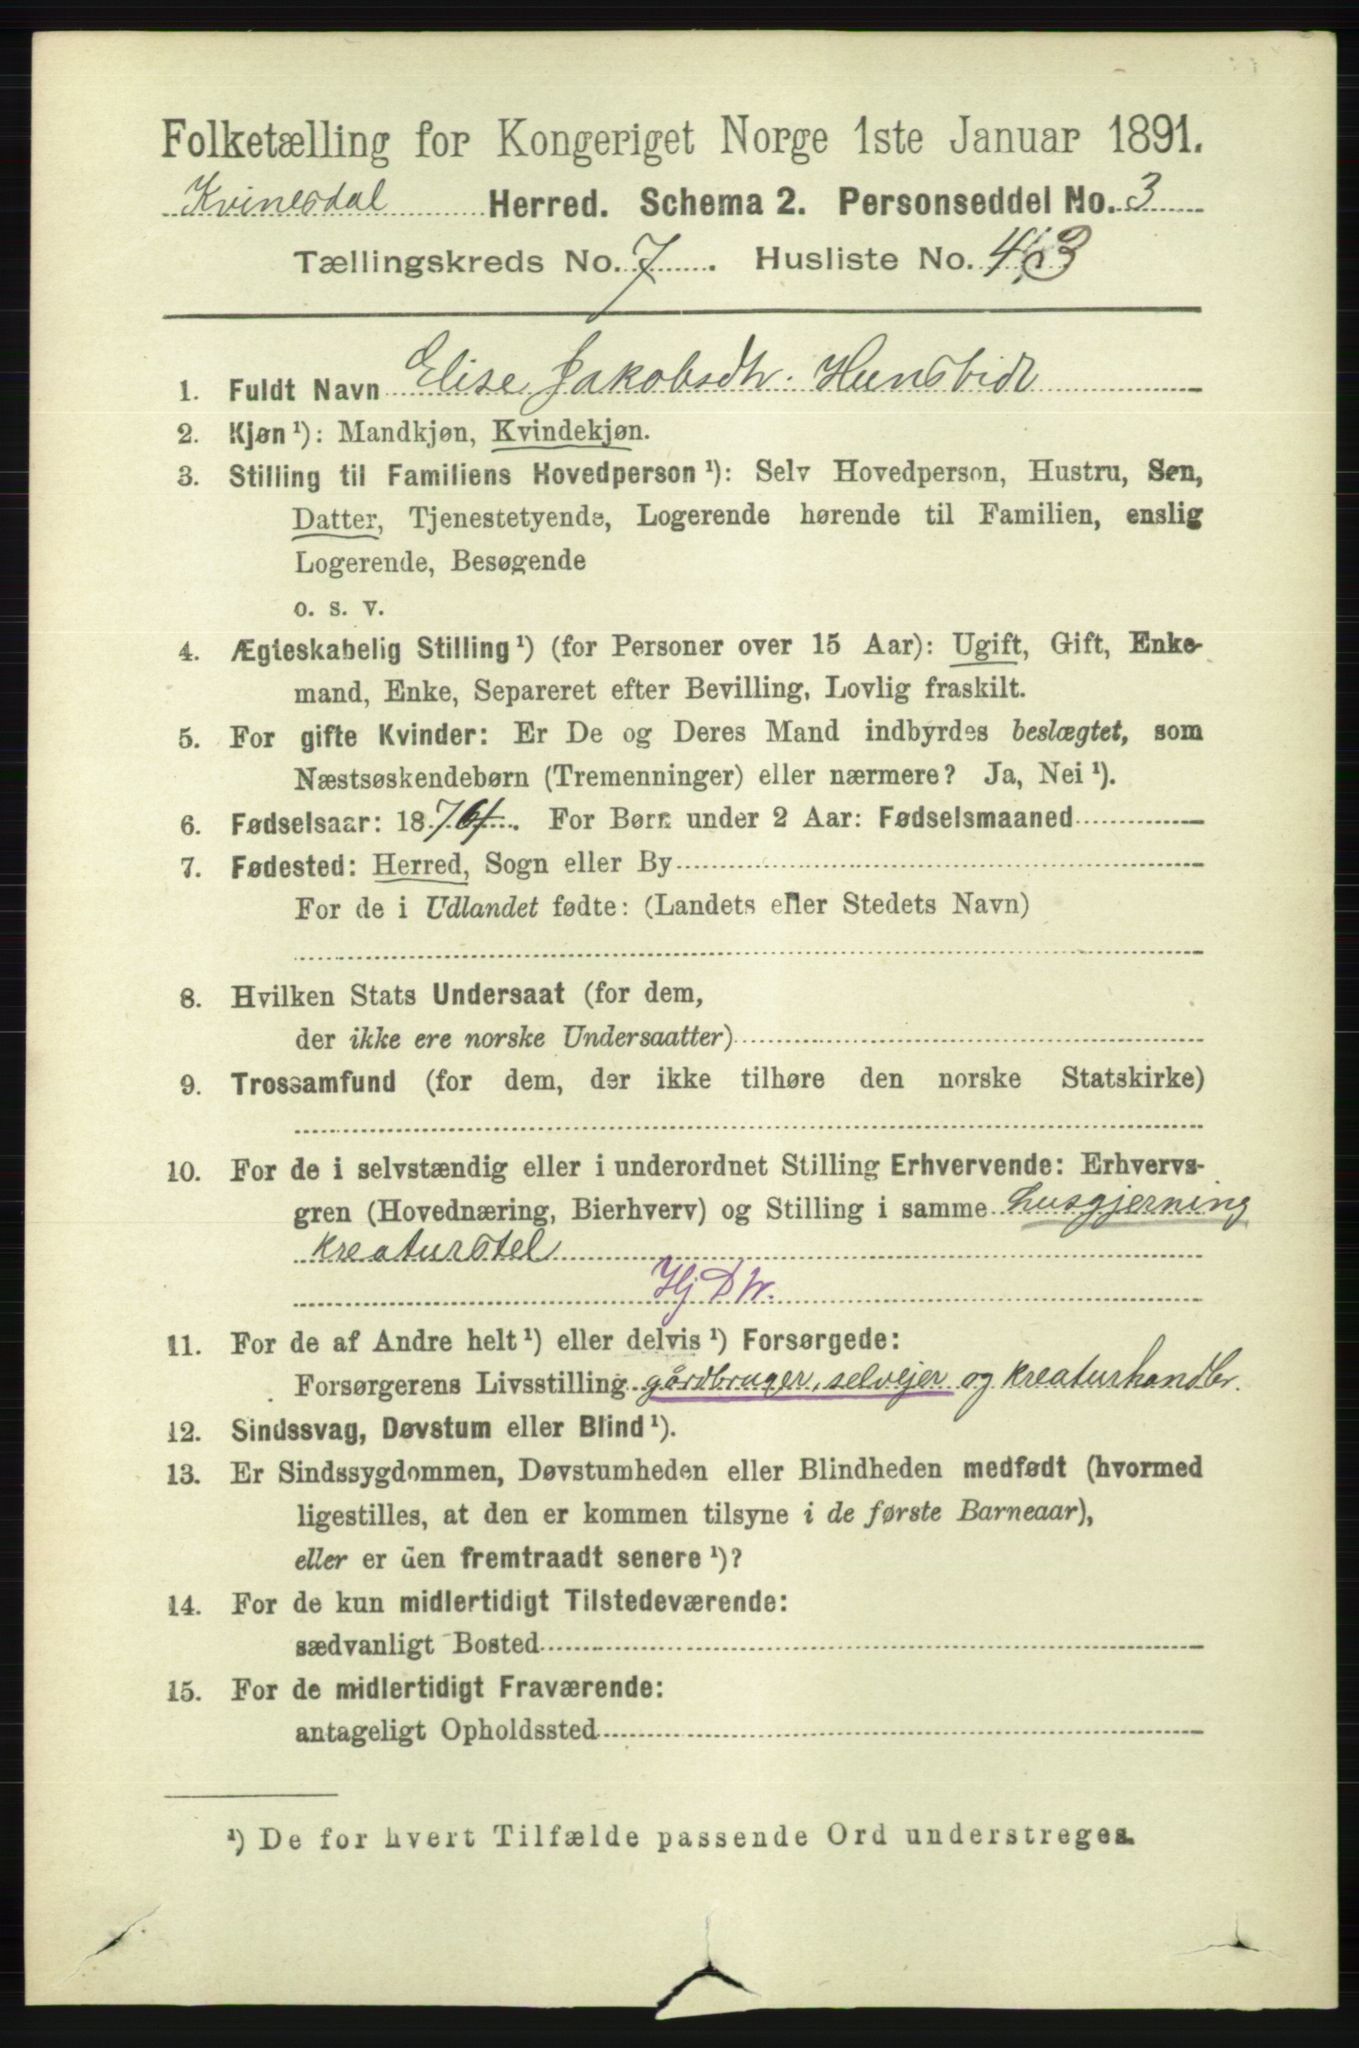 Folketælling for Kongeriget Norge 1ste Januar 1891.
Kvinesdal Herred. Schema 2. Personseddel No. 3
Tællingskreds No. 7. Husliste No. 43
1. Fuldt Navn Elise Jakobsdtr. Hunsbidt
2. Kjøn ¹): Mandkjøn, Kvindekjøn.
3. Stilling til Familiens Hovedperson ¹): Selv Hovedperson, Hustru, Søn,
Datter, Tjenestetyende, Logerende hørende til Familien, enslig
Logerende, Besøgende
o. s. v.
4. Ægteskabelig Stilling ¹) (for Personer over 15 Aar): Ugift, Gift, Enke-
mand, Enke, Separeret efter Bevilling, Lovlig fraskilt.
5. For gifte Kvinder: Er De og Deres Mand indbyrdes beslægtet, som
Næstsøskendebørn (Tremenninger) eller nærmere? Ja, Nei ¹).
6. Fødselsaar: 18 . For Børn under 2 Aar: Fødselsmaaned
7. Fødested: Herred, Sogn eller By
For de i Udlandet fødte: (Landets eller Stedets Navn)
8. Hvilken Stats Undersaat (for dem,
der ikke ere norske Undersaatter)
9. Trossamfund (for dem, der ikke tilhøre den norske Statskirke)
10. For de i selvstændig eller i underordnet Stilling Erhvervende: Erhvervs-
gren (Hovednæring, Bierhverv) og Stilling i samme husgjerning
kreaturstel
Hj Dtr.
11. For de af Andre helt ¹) eller delvis ¹) Forsørgede:
Forsørgerens Livsstilling gårdbruger, selvejer og kreaturhandler.
12. Sindssvag, Døvstum eller Blind ¹).
13. Er Sindssygdommen, Døvstumheden eller Blindheden medfødt (hvormed
ligestilles, at den er kommen tilsyne i de første Barneaar),
eller er den fremtraadt senere ¹)?
14. For de kun midlertidigt Tilstedeværende:
sædvanligt Bosted
15. For de midlertidigt Fraværende:
antageligt Opholdssted
¹) De for hvert Tilfælde passende Ord understreges.